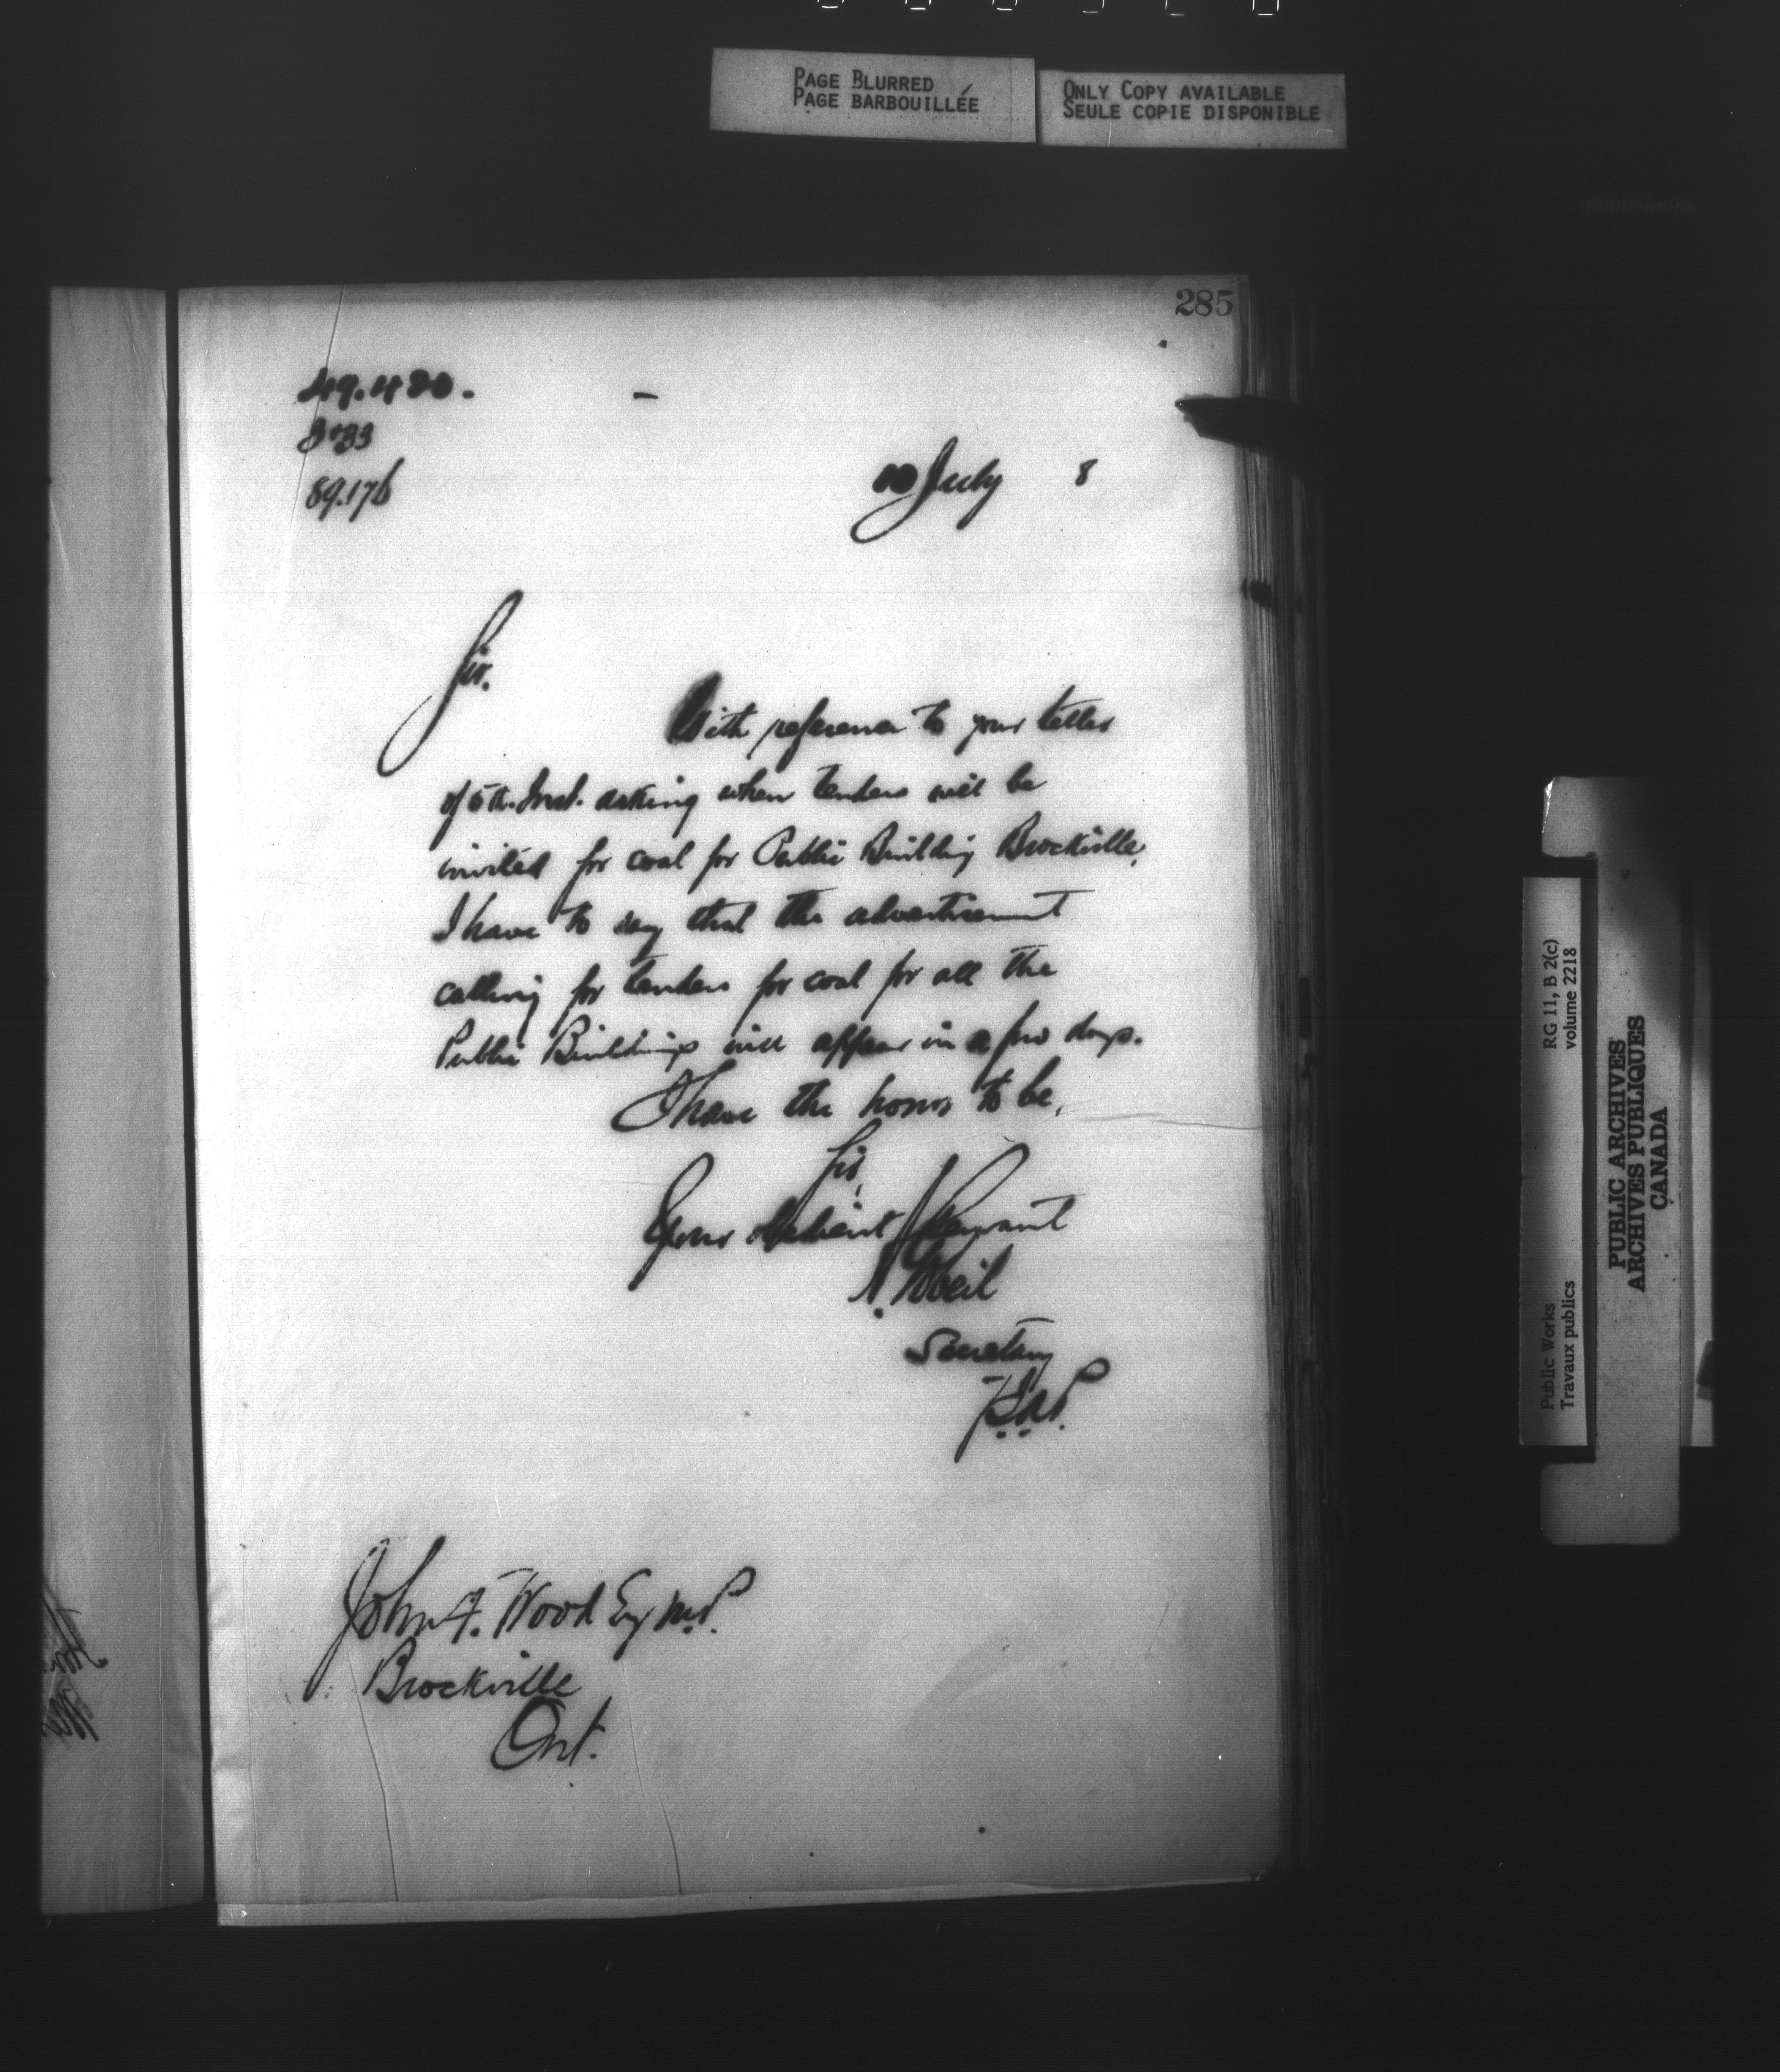 PAGE BLURRED
PAGE BARBOUILLÉE
ONLY COPY AVAILABLE
SEULE COPIE DISPONIBLE
285
49.480.
89.176
10 July 8
Sir.
With reference to your letter
of 5th. Inst. asking when tenders will be
invited for coal for Public Building Brockville,
I have to say that the advertisement
calling for tenders for coal for all the
Public Buildings will appear in a few days.
I have the honor to be,
Sir,
Your obedient Servant
A. Gobeil
Secretary
John F. Wood Esq M.P.
Brockville
Ont.
RG 11, B 2(c)
volume 2218
Public Works
Travaux publics
PUBLIC ARCHIVES
ARCHIVES PUBLIQUES
CANADA